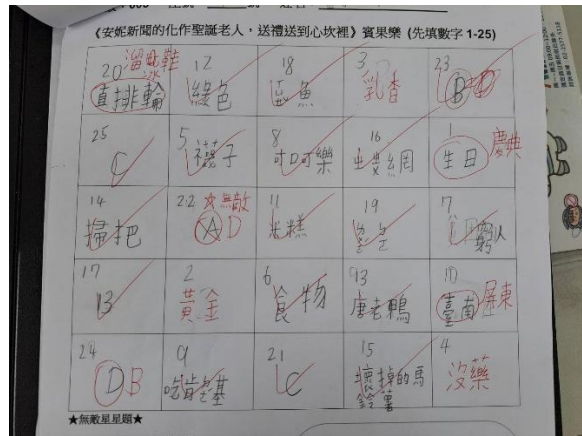 《安妮新聞的化作聖誕老人，送禮送到心坎裡》賓果樂 (先填數字 1-25)
20 溜冰鞋 直排輪
12 綠色
18
3 乳香
23 B D
25 C
5 襪子
8 可口可樂
16
1 生日 慶典
14 掃把
22 無敵 A D
11 米糕
19
7 窮人
17 B
2 黃金
6 食物
13 唐老鴨
10 臺南 屏東
24 D B
9 吃肯德基
21 C
15 壞掉的馬鈴薯
4 沒藥
★無敵星星題★